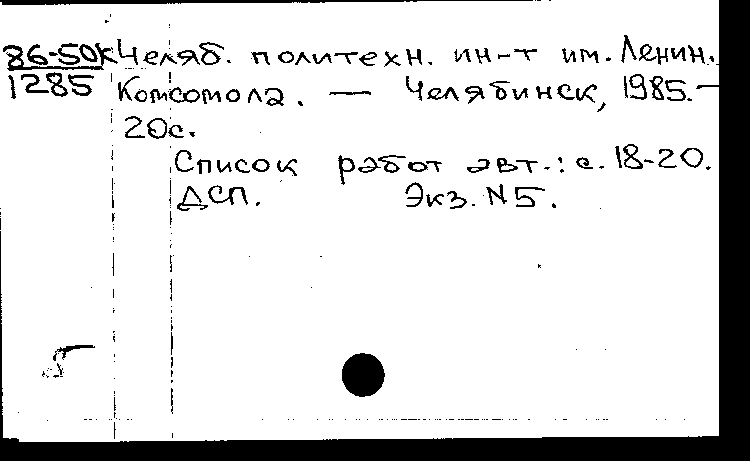 86-50к Челяб. политехн. ин-т им. Ленин.
1285 Комсомола. — Челябинск, 1985.—
20с.
Список работ авт.: с. 18-20.
ДСП. Экз. N5.